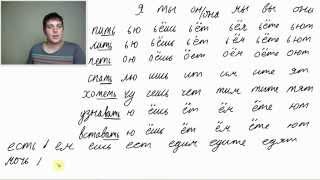 я ты он/она мы вы они
пить ью ьёшь ьёт ьём ьёте ьют
лить ью ьёшь ьёт ьём ьёте ьют
петь ою оёшь оёт оём оёте оют
спать лю ишь ит им ите ят
хотеть чу чешь чет тим тите тят
узнавать ю ёшь ёт ём ёте ют
вставать ю ёшь ёт ём ёте ют
есть ем ешь ест едим едите едят
мочь